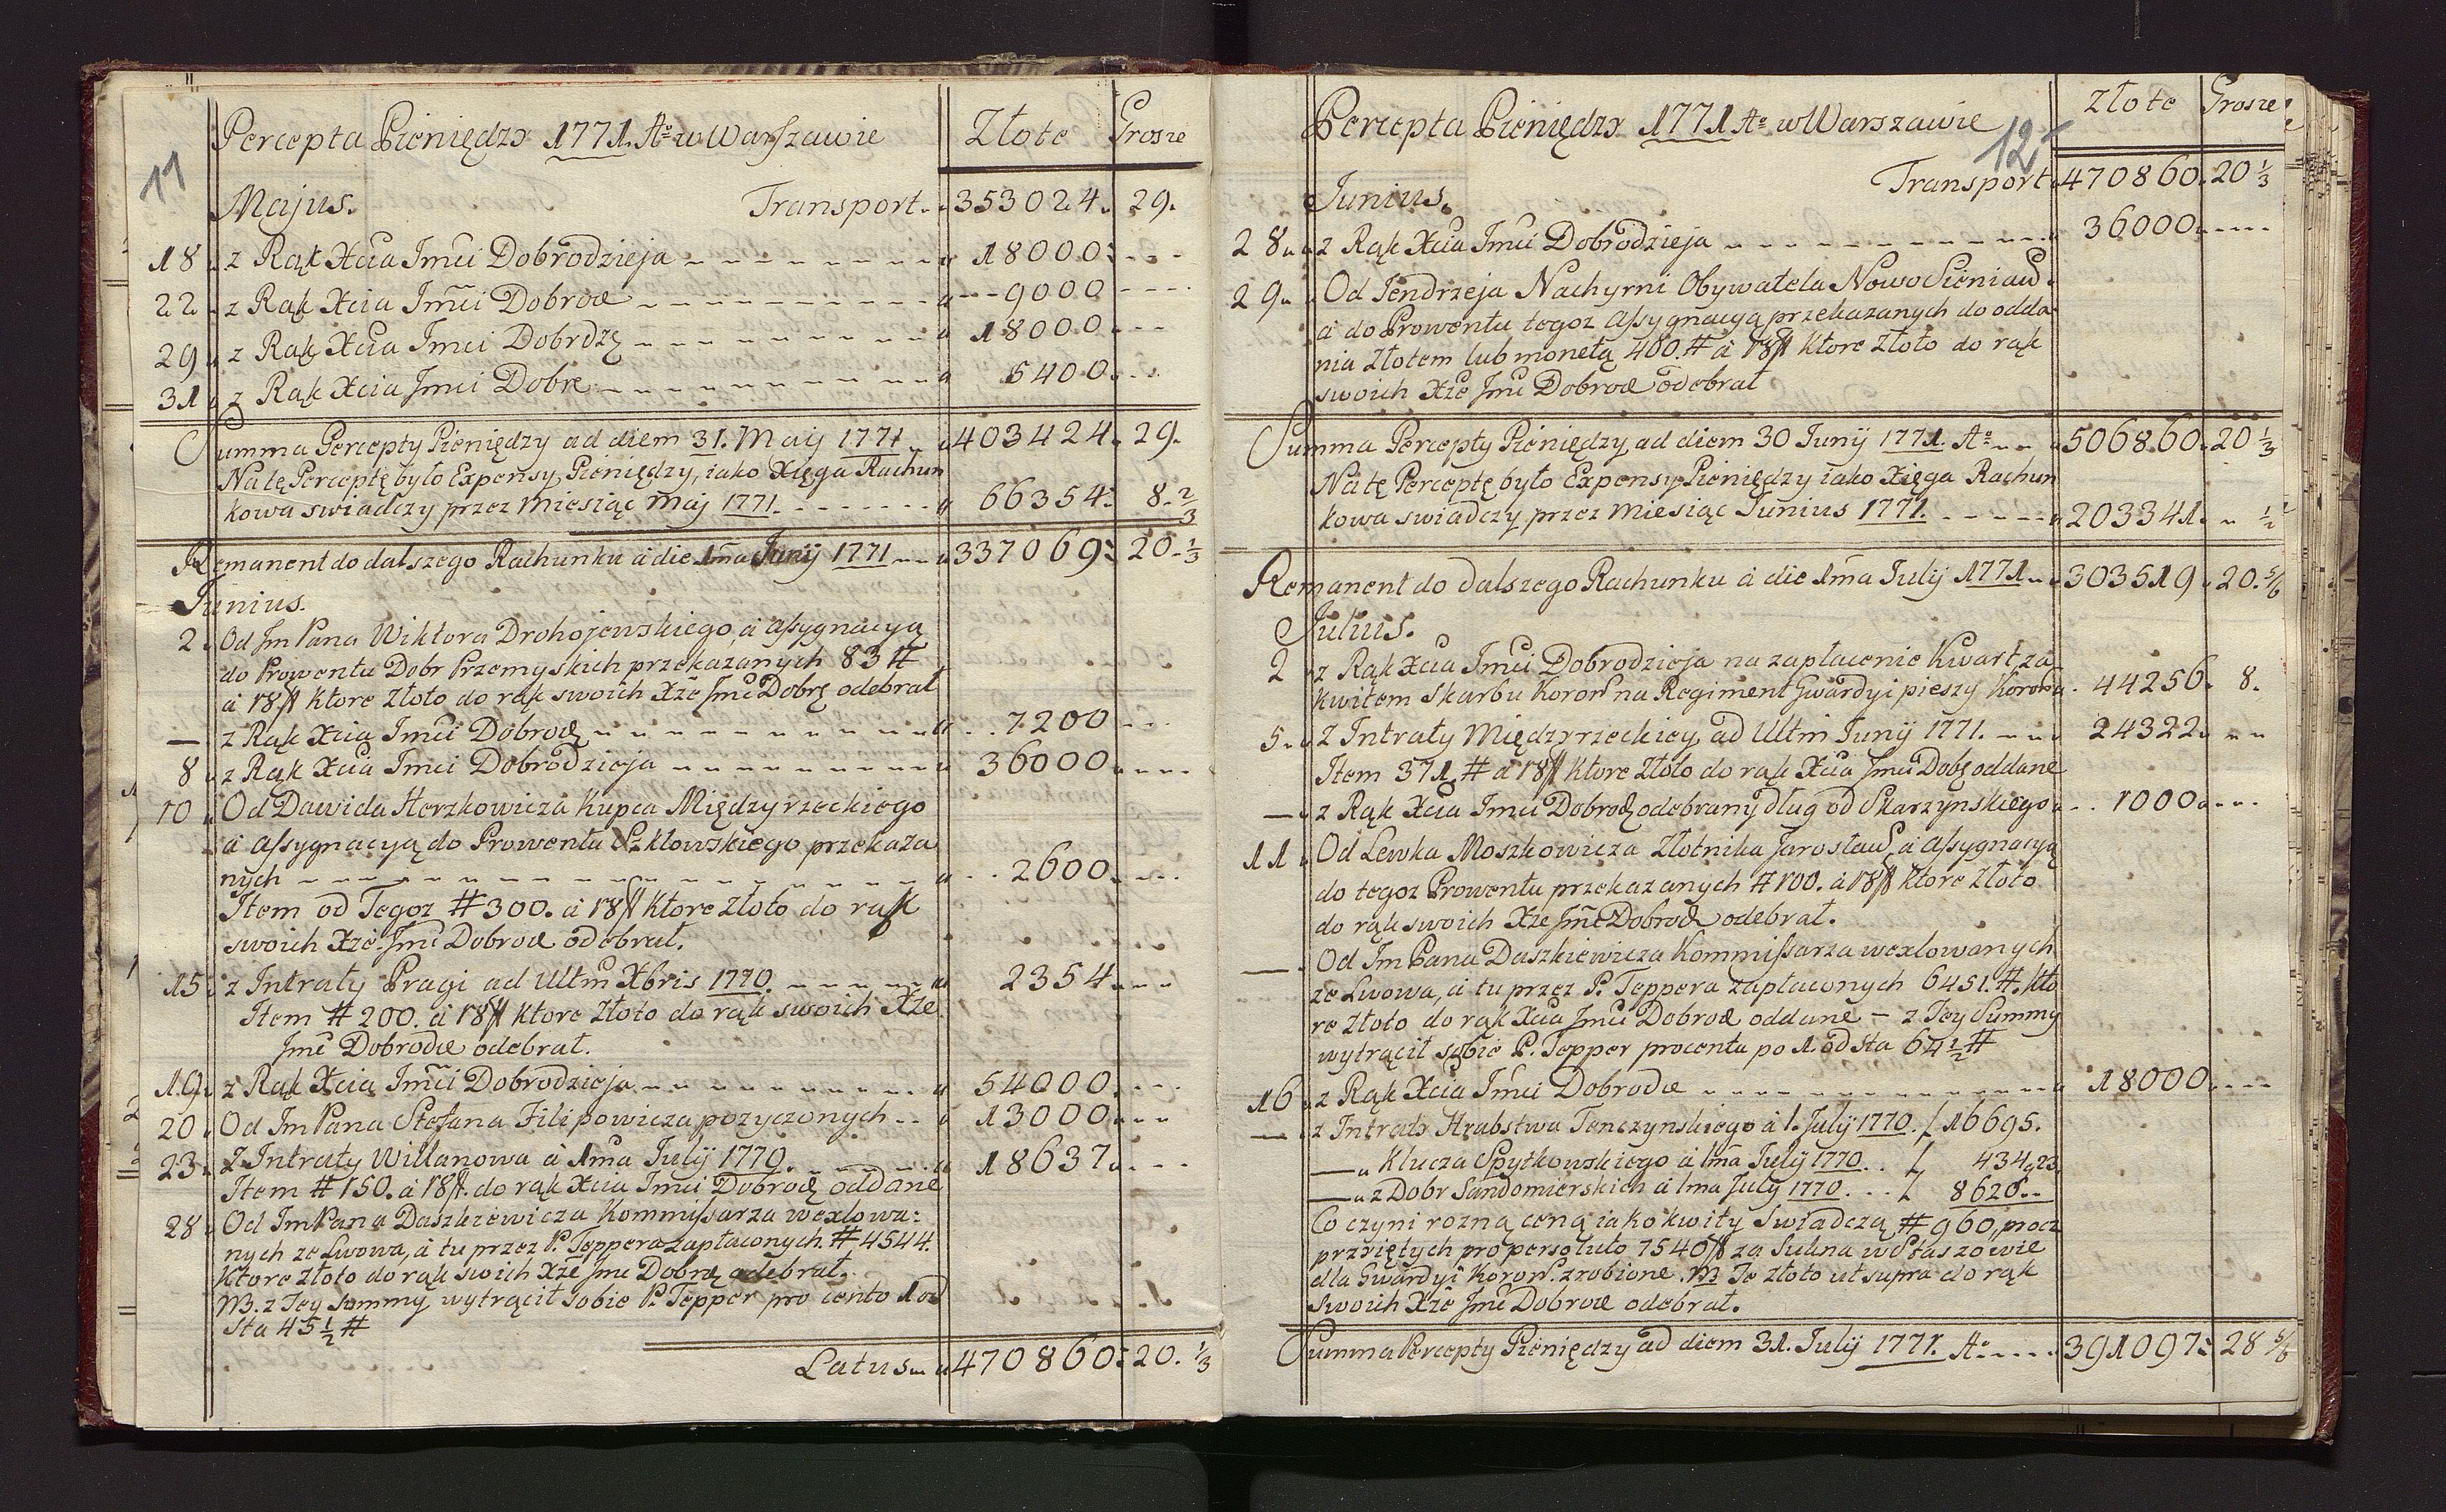 11
Percepta Pieniędzy 1771. Ao w Warszawie Złote Grosze
Majus. Transport 353024. 29.
18 z Rąk Xcia Jmci Dobrodzieja 18000
22 z Rąk Xcia Jmci Dobrod 9000
29 z Rąk Xcia Jmci Dobrdz 18000
31 z Rąk Xcia Jmci Dobr 5400
Summa Percepty Pieniędzy ad diem 31. Maij 1771 403424. 29.
Na tę Perceptę było Expensy Pieniędzy, iako Xięga Rachun
kowa swiadczy przez Miesiąc Maj 1771. 66354. 8. 2/3
Remanent do dalszego Rachunku a die 1ma Junij 1771 337069 20. 1/3
Junius.
2. Od Jm Pana Wiktora Drohojewskiego, a Assygnacyą
do Prowentu Dobr Przemyskich przekazanych 83 #
a 18 f ktore Złoto do rąk swoich Xże Jmc Dobr odebrał
— z Rąk Xcia Jmci Dobrod 7200
8 z Rąk Xcia Jmci Dobrodzieja 36000
10 Od Dawida Herzkowicza Kupca Międzyrzeckiego
a Assygnacyą do Prowentu Szkłowskiego przekaza
nych 2600
Item od Tegoz # 300. a 18 f ktore Złoto do rąk
swoich Xże Jmc Dobrod odebrał.
15 z Intraty Pragi ad Ultm Xbris 1770. 2354
Item # 200. a 18 f ktore Złoto do rąk swoich Xże
Jmc Dobrod odebrał.
19. z Rąk Xcia Jmci Dobrodzieja 54000
20 Od Jm Pana Stefana Filipowicza pozyczonych 13000
23 Z Intraty Willanowa a 1ma July 1770. 18637
Item # 150. a 18 f. do rąk Xcia Jmci Dobrod oddane
28 Od Jm Pana Daszkiewicza Kommissarza wexlowa:
nych ze Lwowa, a tu przez P. Teppera zapłaconych. # 4544.
Ktore Złoto do rąk swoich Xże Jmc Dobrd odebrał.
NB. z Tey Summy wytrącił sobie P. Tepper pro cento 1 od
sta 45 1/2 #
Latus 470860 20. 1/3
12
Percepta Pieniędzy 1771 Ao w Warszawie Złote Grosze
Transport 470860. 20 1/3
Junius.
28 z Rąk Xcia Jmci Dobrodzieja 36000
29 Od Jendrzeja Nachyrni Obywatela Nowo Sieniaw.
a do Prowentu tegoz Assygnacyą przekazanych do odda
nia Złotem lub monetą 400. # a 18 f Ktore Złoto do rąk
swoich Xże Jmc Dobrod odebrał
Summa Percepty Pieniędzy ad diem 30 Junij 1771. Ao 506860. 20 1/3
Na tę Perceptę było Expensy Pieniędzy iako Xięga Rachun
kowa swiadczy przez miesiąc Junius 1771. 203341. 1/2
Remanent do dalszego Rachunku a die 1ma July 1771 303519. 20. 5/6
Julius.
2 z Rąk Xcia Jmci Dobrodzieja na zapłacenie Kwart. za
Kwitem Skarbu Koron na Regiment Gwardyi pieszy Koronn. 44256. 8.
5. Z Intraty Międzyrzeckiey ad Ultm Junij 1771. 24322
Item 371 # a 18 f Ktore Złoto do rąk Xcia Jmci Dob oddane
— z Rąk Xcia Jmci Dobrod odebrany dług od Skarzynskiego 1000
11 Od Lewka Moszkowicza Złotnika Jarosław, a Assygnacyą
do tegoz Prowentu przekazanych # 100. a 18 f Ktore Złoto
do rąk swoich Xże Jmc Dobrod odebrał.
— Od Jm Pana Daszkiewicza Kommissarza wexlowanych
ze Lwowa, a tu przez P. Teppera zapłaconych 6451. #. kto
re Złoto do rąk Xcia Jmci Dobrod oddane – z Tey Summy
wytrącił sobie P. Tepper procentu po 1. od sta 64 1/2 #
16 z Rąk Xcia Jmci Dobrod 18000
— z Intraty Hrabstwa Tenczynskiego a 1. July 1770. f 16695.
— Klucza Spytkowskiego a 1ma July 1770. f 434. 23
— z Dobr Sandomierskich a 1ma July 1770. f 8620
Co czyni rozną ceną iako kwity Swiadczą # 960, procz
przyiętych pro persoluto 7540 f za Sukna w Staszowie
dla Gwardyi Koron. zrobione. NB Te złoto ut supra do rąk
Swoich Xże Jmc Dobrod odebrał.
Summa Percepty Pieniędzy ad diem 31. July 1771. Ao 391097 28 5/6